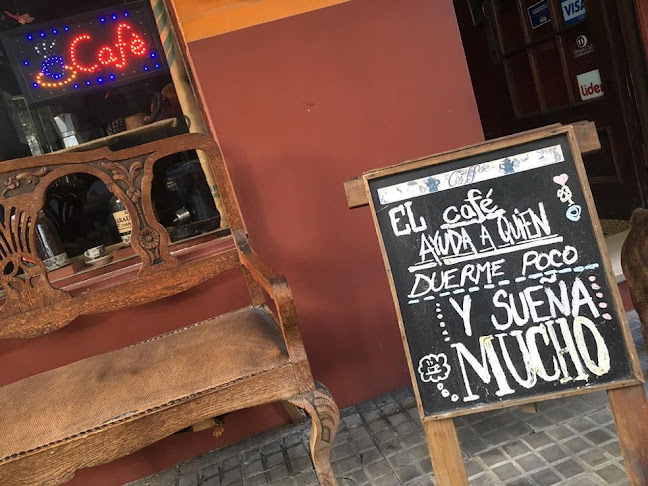 Café
VISA
Diners Club
lider
Coffee
EL café
AYUDA A QUIEN
DUERME POCO
Y SUEÑA
MUCHO